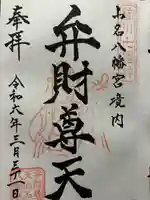 小名八幡宮境内
弁財尊天
奉拝
令和六年三月三十一日